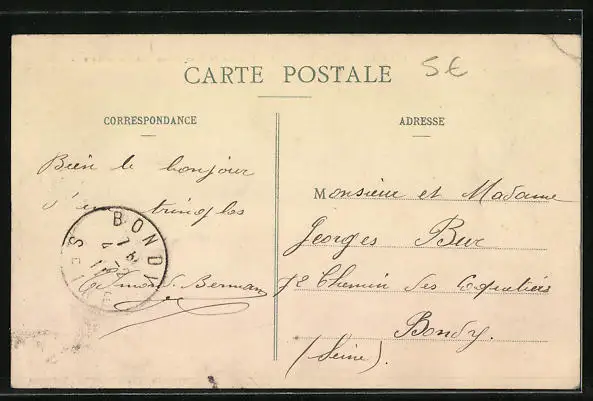 CARTE POSTALE
5€
CORRESPONDANCE
Bien le bonjour
d'un
BONDY
SEINE
ADRESSE
Monsieur et Madame
Georges
72 Chemin des Coquetiers
Bondy.
(Seine).